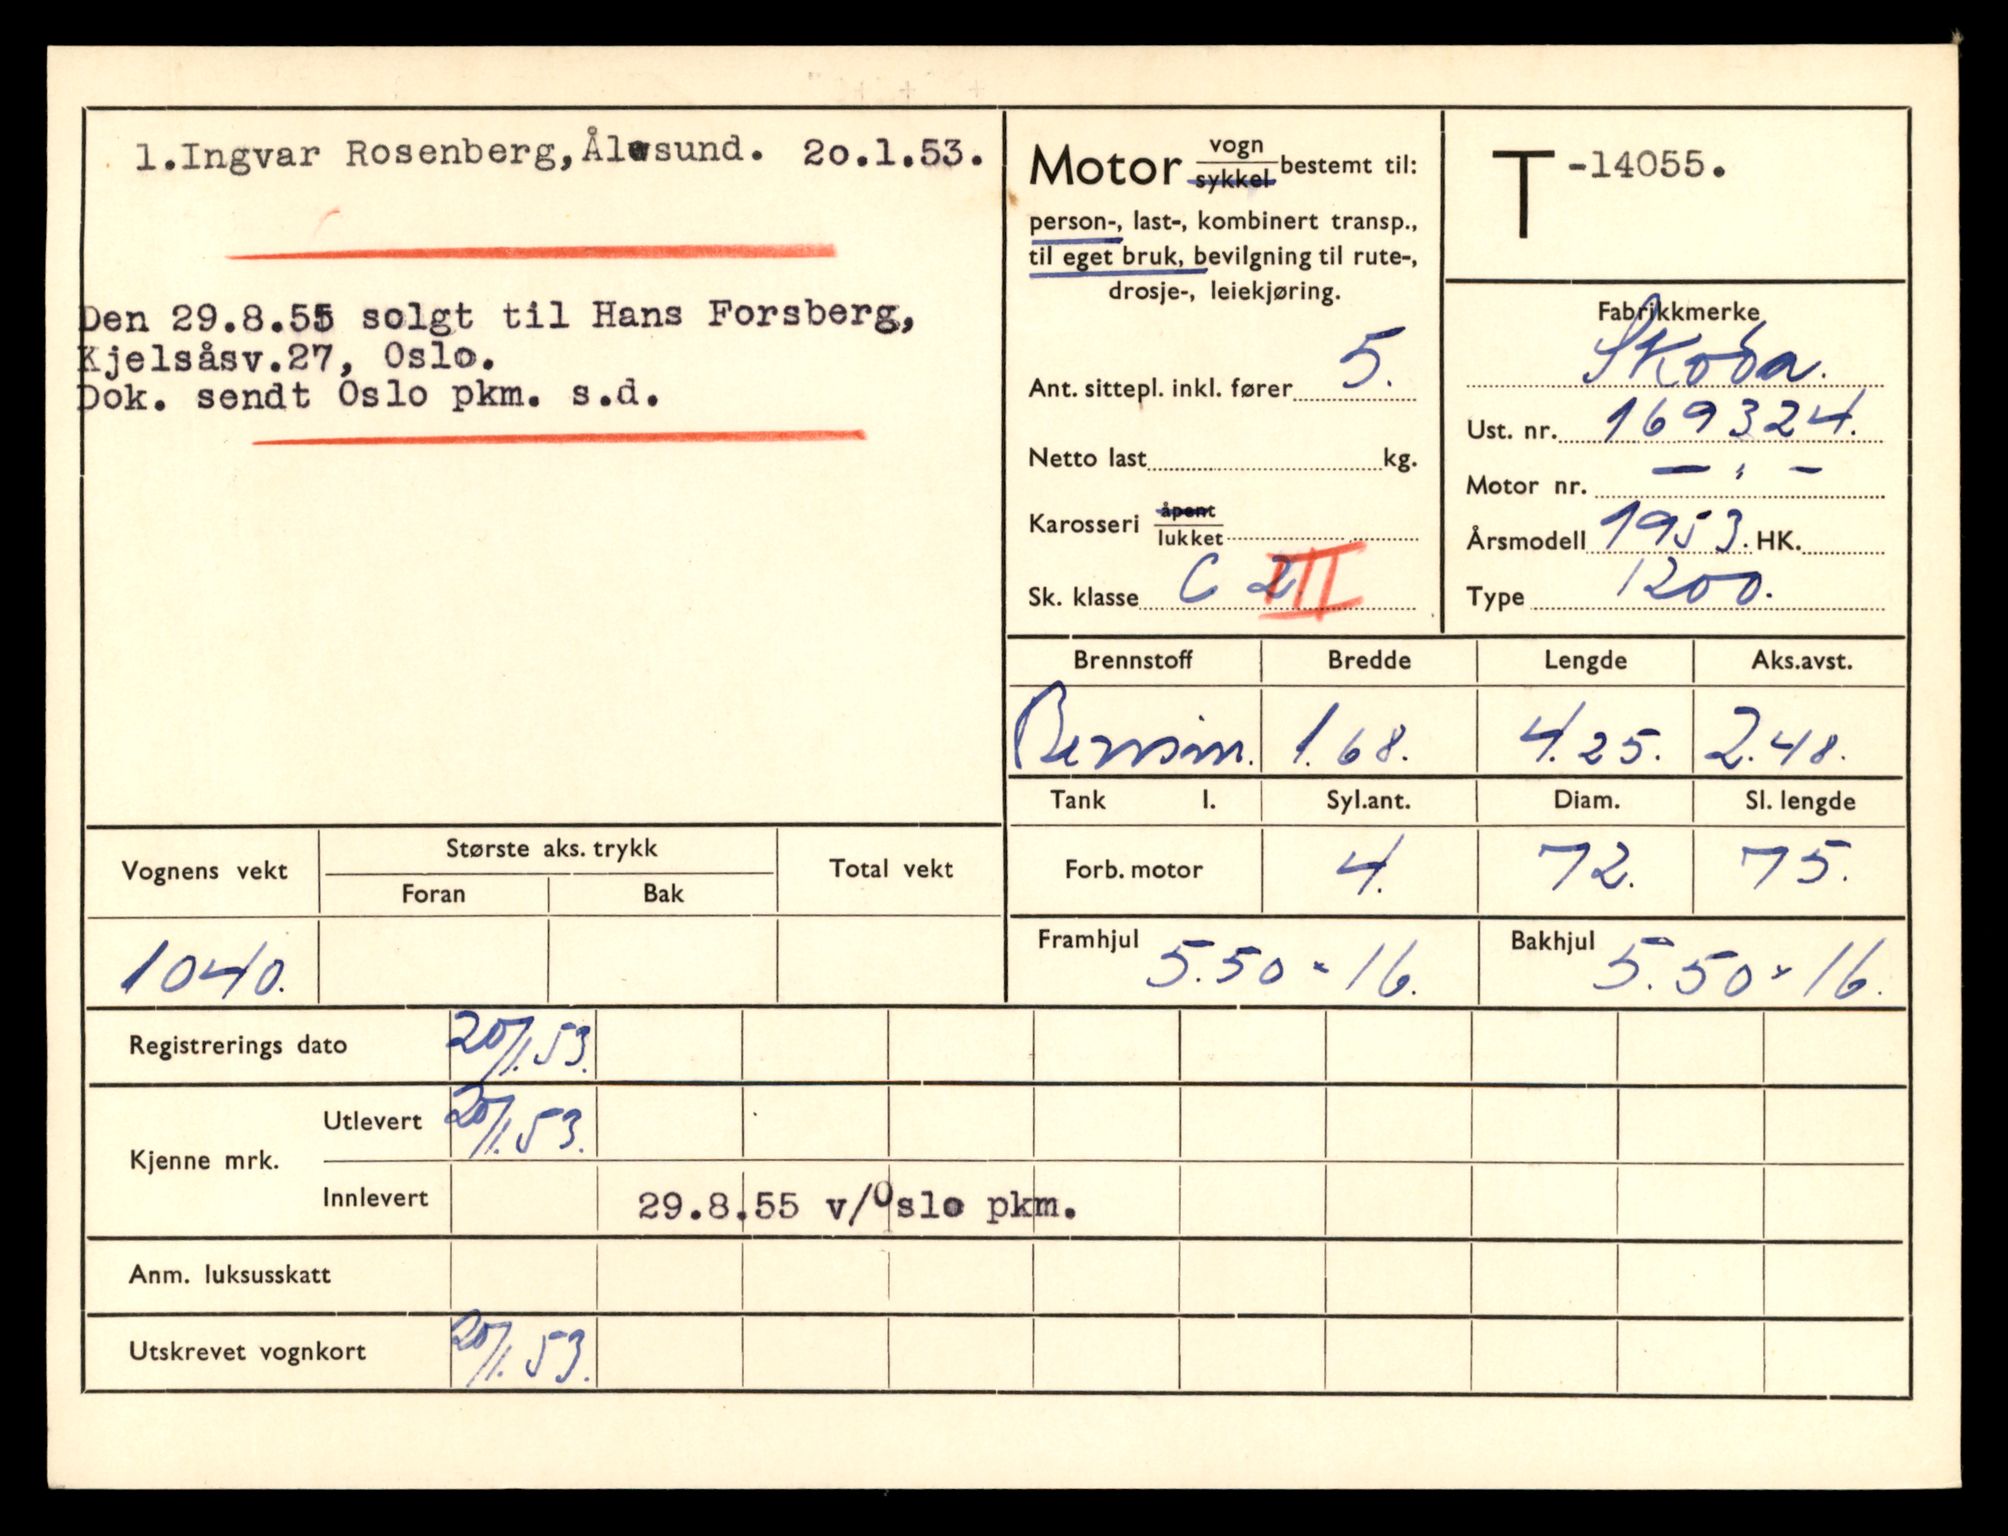 1.Ingvar Rosenberg,Ålesund. 20.1.53.
Den 29.8.55 solgt til Hans Forsberg,
Kjelsåsv.27, Oslo.
Dok. sendt Oslo pkm. s.d.
Motor vogn
sykkel bestemt til:
person-, last-, kombinert transp.,
til eget bruk, bevilgning til rute-,
drosje-, leiekjøring.
Ant. sittepl. inkl. fører 5.
Netto last kg.
Karosseri åpent
lukket
Sk. klasse C 2 III
T -14055.
Fabrikkmerke
Skoda.
Ust. nr. 169324.
Motor nr. — „ —
Årsmodell 1953. HK.
Type 1200.
Brennstoff Bredde Lengde Aks.avst.
Bensin. 1.68. 4.25. 2.48.
Tank l. Syl.ant. Diam. Sl. lengde
Forb. motor 4. 72. 75.
Framhjul 5.50 x 16. Bakhjul 5.50 x 16.
Vognens vekt Største aks. trykk Total vekt
Foran Bak
1040.
Registrerings dato 20/1.53.
Kjenne mrk. Utlevert 20/1.53.
Innlevert 29.8.55 v/Oslo pkm.
Anm. luksusskatt
Utskrevet vognkort 20/1.53.